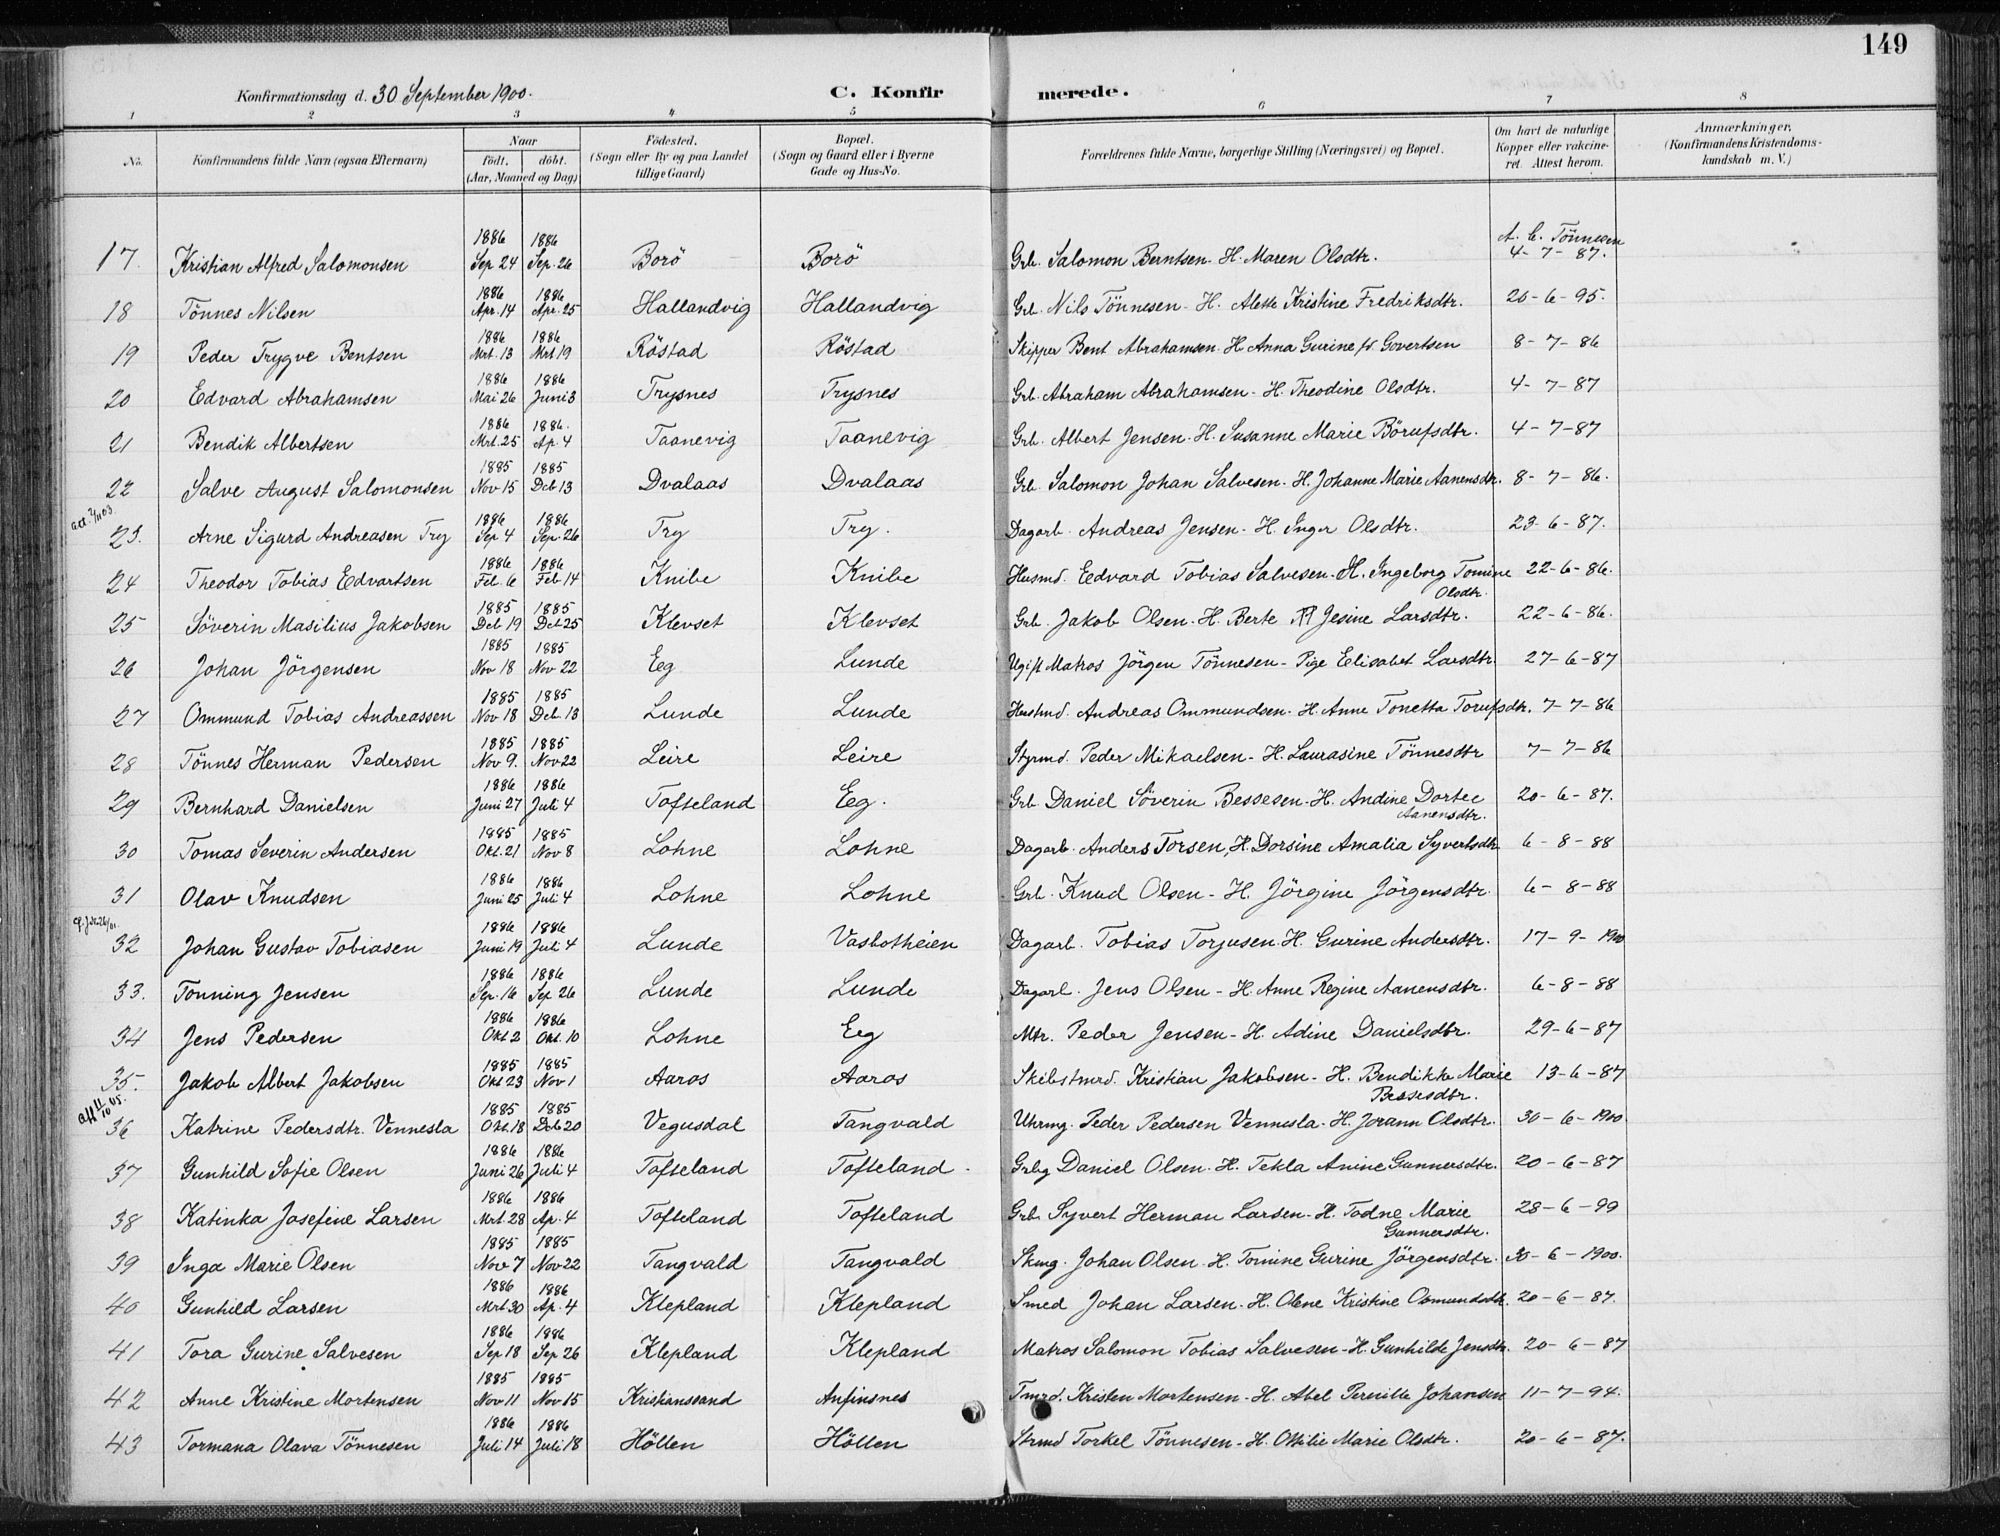 149
Konfirmationsdag d. 30 September 1900. C. Konfirmerede.
1 2 3 4 5 6 7 8
No. Konfirmandens fulde Navn (ogsaa Efternavn) Naar födt. döbt. (Aar, Maaned og Dag) Födested. (Sogn eller By og paa Landet tillige Gaard) Bopæl. (Sogn og Gaard eller i Byerne Gade og Hus-No. Forældrenes fulde Navne, borgerlige Stilling (Næringsvei) og Bopæl. Om havt de naturlige Kopper eller vakcineret. Attest herom. Anmærkninger, (Konfirmandens Kristendomskundskab m. V.)
17. Kristian Alfred Salomonsen 1886 Sep 24 1886 Sep. 26 Borö Borö Grb. Salomon Berntsen - H. Maren Olsdtr. A. C. Tönnesen 4-7-87.
18 Tönnes Nilsen 1886 Apr. 14 1886 Apr. 25 Hallandvig Hallandvig Grb. Nils Tönnesen - H. Alette Kristine Fredriksdtr. 20-6-95.
19 Peder Trygve Bentsen 1886 Mrt. 13 1886 Mrt 19 Röstad Röstad Skipper Bent Abrahamsen - H. Anna Gurine f. Govertsen 8-7-86
20 Edvard Abrahamsen 1886 Mai 26 1886 Juni 3 Trysnes Trysnes Grb. Abraham Abrahamsen - H. Theodine Olsdtr. 4-7-87
21 Bendik Albertsen 1886 Mrt. 25 1886. Ap. 4 Taanevig Taanevig Grb. Albert Jensen - H. Susanne Marie Börufsdtr. 4-7-87
22 Salve August Salomonsen 1885 Nov 15 1885 Dcb 13 Dvalaas Dvalaas Grb. Salomon Johan Salvesen - H. Johanne Marie Aanensdtr. 8-7-86.
23. Arne Sigurd Andreasen Try 1886 Sep 4 1886 Sep. 26 Try Try. Dagarb. Andreas Jensen - H. Inger Olsdtr. 23-6-87.
24 Theodor Tobias Edvartsen 1886 Feb. 6 1886 Feb. 14 Knibe Knibe Husmd. Edvard Tobias Salvesen - H. Ingeborg Tomine Olsdtr. 22-6-86.
25 Söverin Masilius Jakobsen 1885 Dcb 19 1885 Dcb 25 Klevset Klevset Grb. Jakob Olsen - H. Berte Jesine Larsdtr. 22-6-86.
26 Johan Jörgensen 1885 Nov 18 1885 Nov 22 Eeg Lunde Ugift Matros Jörgen Tönnesen - Pige Elisabet Larsdtr. 27-6-87
27 Ommund Tobias Andreassen 1885 Nov 18 1885 Dcb. 13 Lunde Lunde Husmd. Andreas Ommundsen - H. Anne Tonetta Torufsdtr. 7-7-86
28 Tönnes Herman Pedersen 1885 Nov 9. 1885 Nov 22 Leire Leire Styrmd. Peder Mikaelsen - H. Laurasine Tönnesdtr 7-7-86
29 Bernhard Danielsen 1886 Juni 27 1886 Juli 4 Tofteland Eeg. Grb Daniel Söverin Bessesen - H. Andine Dortee Aanensdtr. 20-6-87.
30 Tomas Severin Andersen 1885 Okt. 21 1885 Nov 8 Lohne Lohne Dagarb. Anders Torsen, H. Dorsine Amalia Syvertsdtr 6-8-88
31 Olav Knudsen 1886 Juni 25 1886 Juli 4 Lohne Lohne Grb. Knud Olsen - H. Jörgine Jörgensdtr. 6-8-88
32 Johan Gustav Tobiasen 1886 Juni 19 1886 Juli 4 Lunde Vasbotheien Dagarb. Tobias Torjusen - H. Gurine Andersdtr. 17-9-1900
33. Tonning Jensen 1886 Sep. 16 1886 Sep 26 Lunde Lunde Dagarb. Jens Olsen - H. Anne Regine Aanensdtr. 6-8-88
34 Jens Pedersen 1886 Okt 2 1886 Okt. 10 Lohne Eeg Mtr. Peder Jensen - H. Adine Danielsdtr. 29-6-87
35. Jakob Albert Jakobsen 1885 Okt 23 1885 Nov 1 Aaros Aaros Skibstmrd. Kristian Jakobsen - H. Bendikke Marie Bessesdtr. 13-6-87
36 Katrine Pedersdtr. Vennesla 1885 Okt. 18 1885 Dcb 20 Vegusdal Tangvald Uhrmg. Peder Pedersen Vennesla - H. Jorann Olsdtr. 30-6-1900
37 Gunhild Sofie Olsen 1886 Juni 26 1886 Juli 4 Tofteland Tofteland Grbg Daniel Olsen - H. Tekla Anine Gunnersdtr. 20-6-87
38 Katinka Josefine Larsen 1886 Mrt. 28 1886 Ap. 4 Tofteland Tofteland Grb. Syvert Herman Larsen - H. Todne Marie Gunnersdtr. 28-6-99
39 Inga Marie Olsen 1885 Nov 7 1885 Nov 22 Tangvald Tangvald Skmg. Johan Olsen - H. Tomine Gurine Jörgensdtr. 30-6-1900.
40 Gunhild Larsen 1886 Mrt. 30 1886 Ap. 4 Klepland Klepland Smed Johan Larsen - H. Olene Kristine Osmundsdtr. 20-6-87.
41 Tora Gurine Salvesen 1886 Sep 18 1886 Sep 26 Klepland Klepland Matros Salomon Tobias Salvesen - H. Gunhilde Jensdtr. 20-6-87
42 Anne Kristine Mortensen 1885 Nov 11 1885 Nov 15 Kristianssand Anfinsnes Tmrd. Kristen Mortensen - H. Abel Pernille Johansen 11-7-94.
43 Tormana Olava Tönnesen 1886 Juli 14 1886 Juli 18 Höllen Höllen Strmd Torkel Tönnesen - H. Ottilie Marie Olsdtr. 20-6-87.